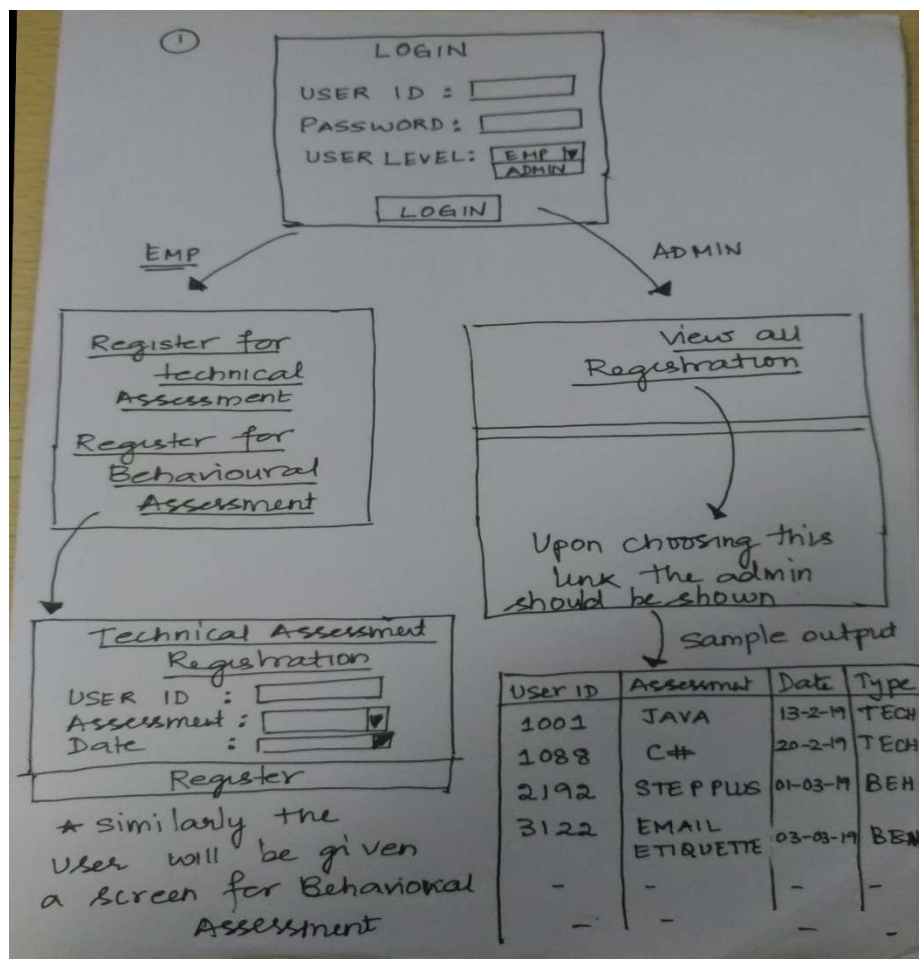 1
LOGIN
USER ID :
PASSWORD :
USER LEVEL: EMP
ADMIN
LOGIN
EMP
ADMIN
Register for
technical
Assessment
Register for
Behavioural
Assessment
View all
Registration
Upon choosing this
link the admin
should be shown
Technical Assessment
Registration
USER ID :
Assessment :
Date :
Register
* Similarly the
User will be given
a screen for Behavioral
Assessment
Sample output
User ID Assessment Date Type
1001 JAVA 13-2-19 TECH
1088 C# 20-2-19 TECH
2192 STEP PLUS 01-03-19 BEH
3122 EMAIL
ETIQUETTE 03-03-19 BEH
- - - -
- - - -